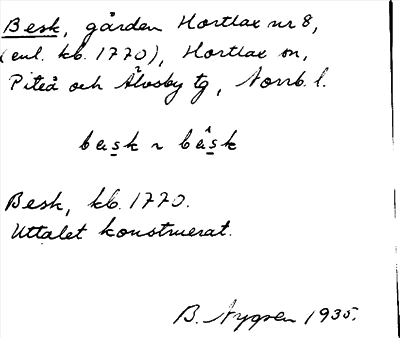 Besk, gården Hortlax nr 8,
(enl. kb. 1770), Hortlax sn,
Piteå och Älvsby tg, Norrb. l.
bask ~ båsk
Besk, kb. 1770.
Uttalet konstruerat.
B. Nygren 1935.